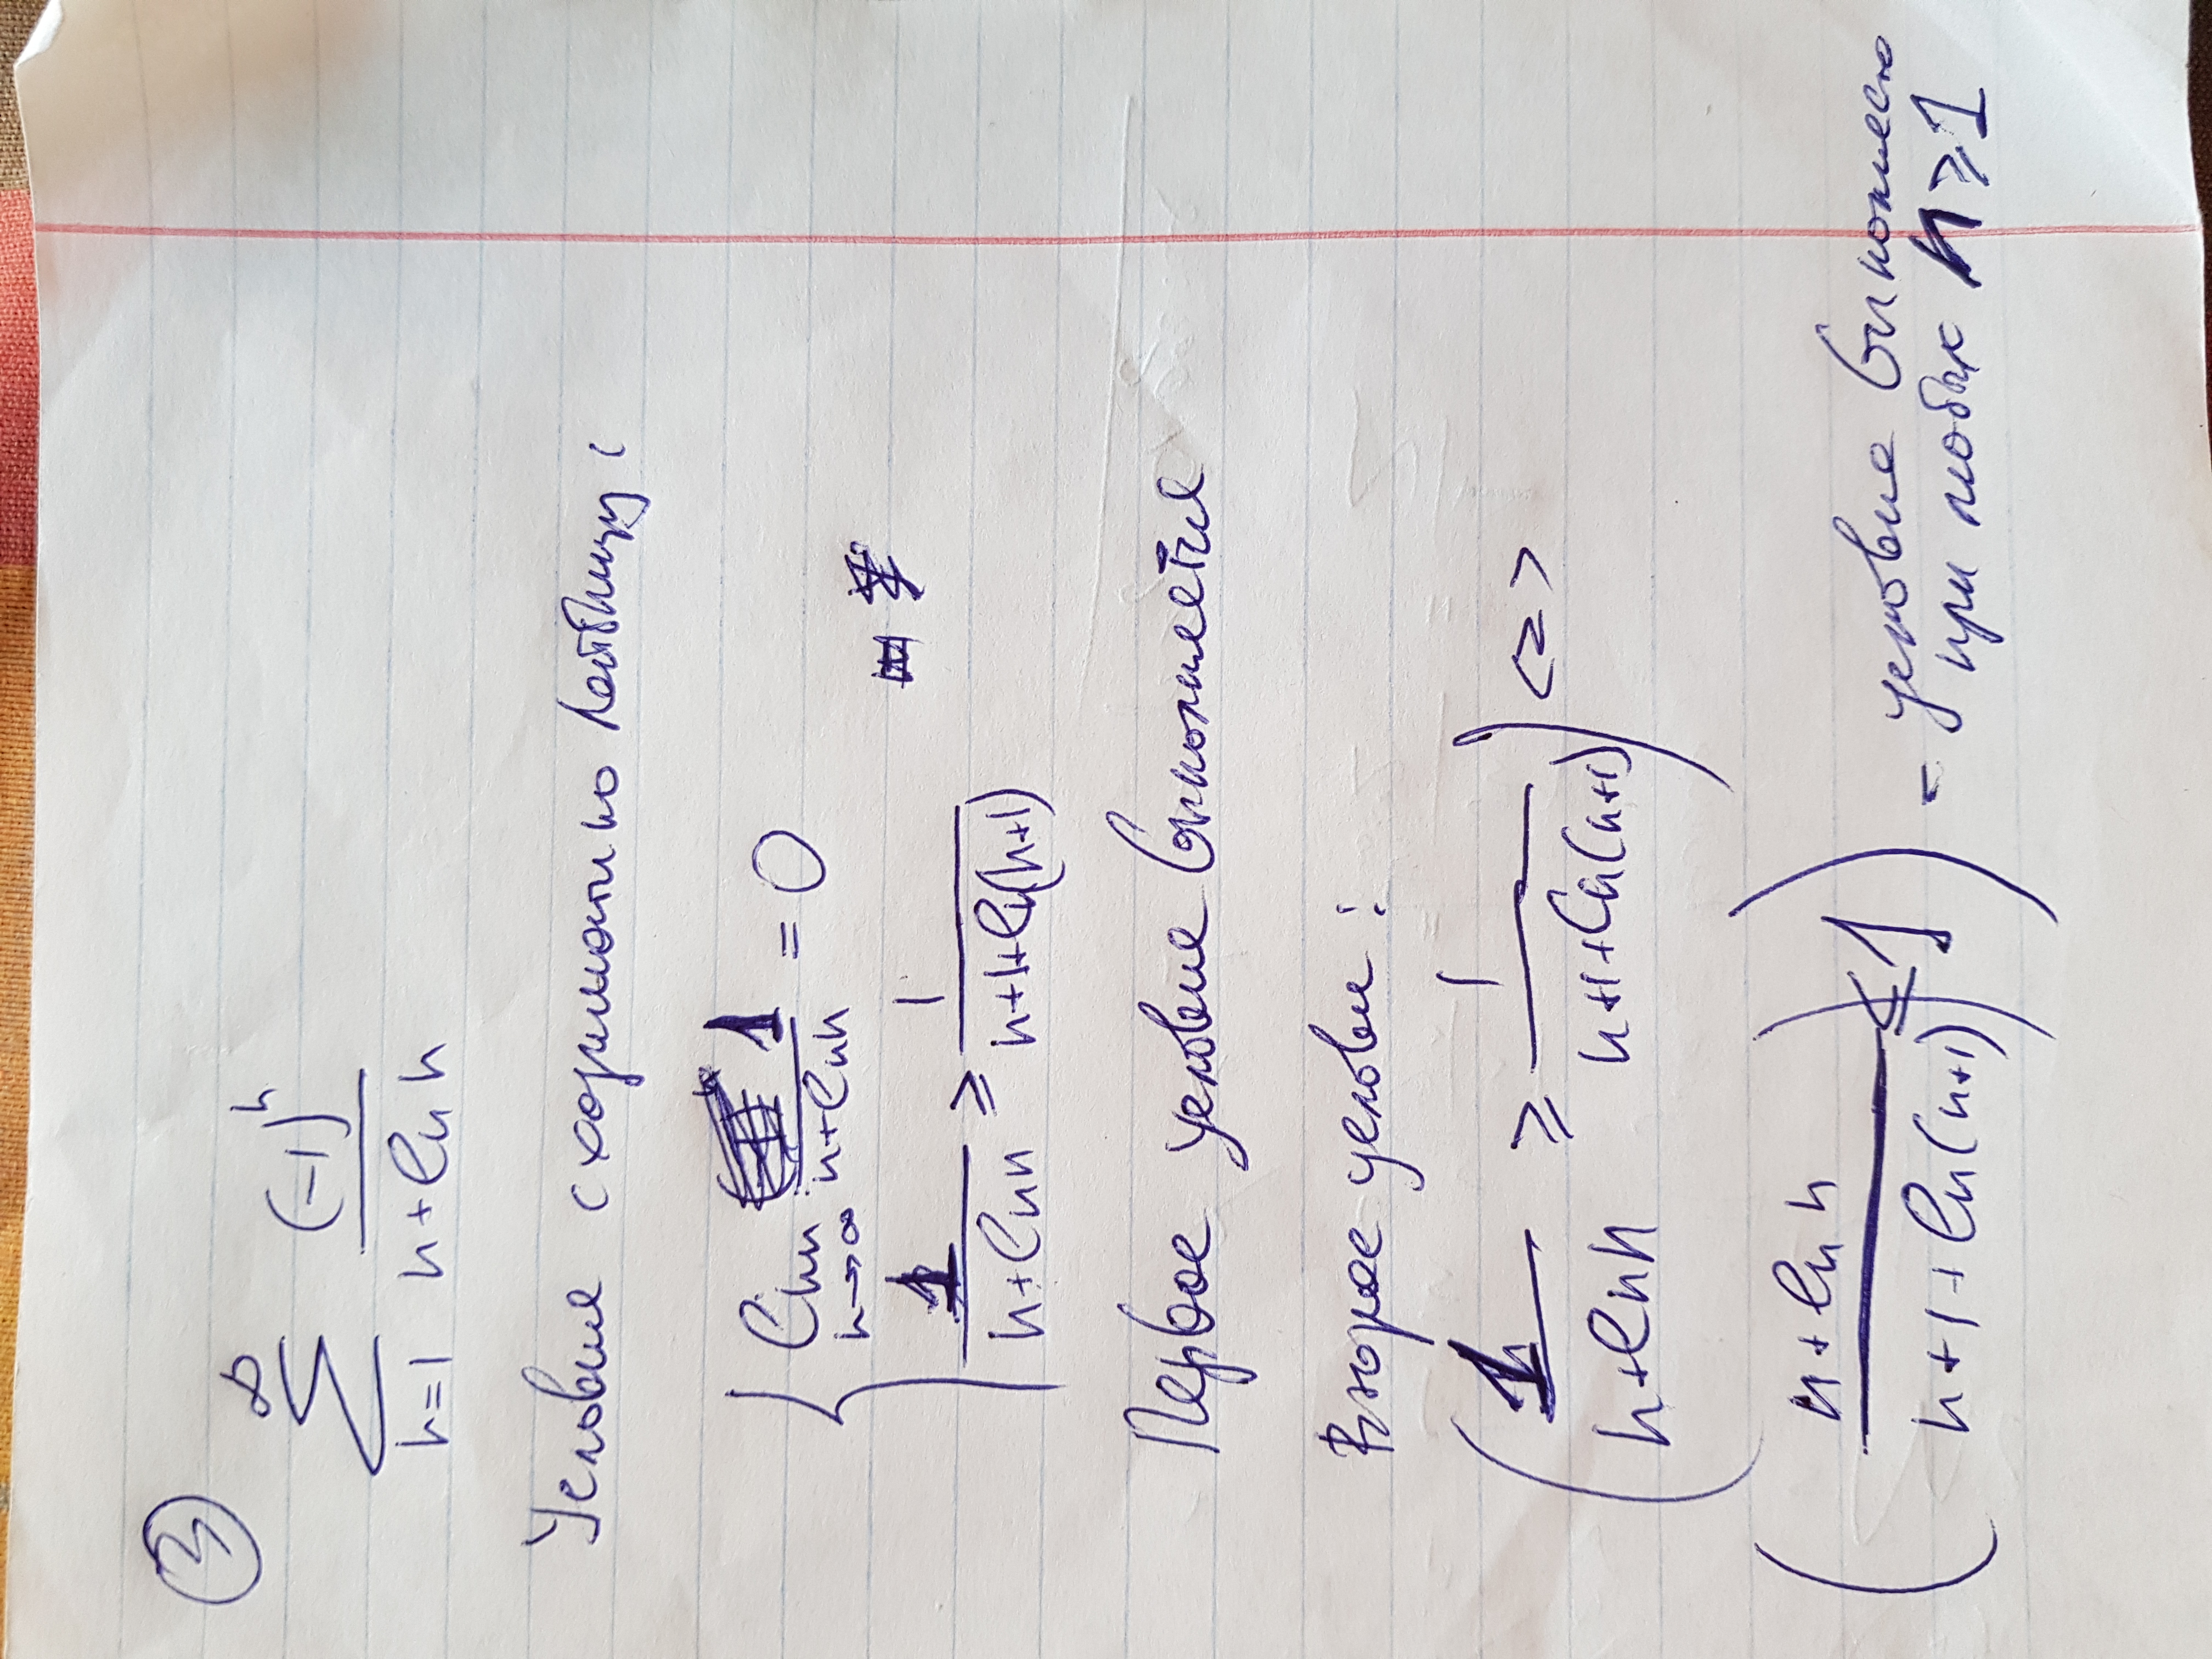 3
∞
∑ (-1)^n / (n+ln n)
n=1
Условие сходимости по Лейбницу:
lim 1/(n+ln n) = 0
n→∞
1/(n+ln n) ≥ 1/(n+1+ln(n+1))
Первое условие выполняется
Второе услови :
(1/(n+ln n) ≥ 1/(n+1+ln(n+1))) <=>
((n+ln n)/(n+1+ln(n+1)) ≤ 1) - условие
при любых n ≥ 1